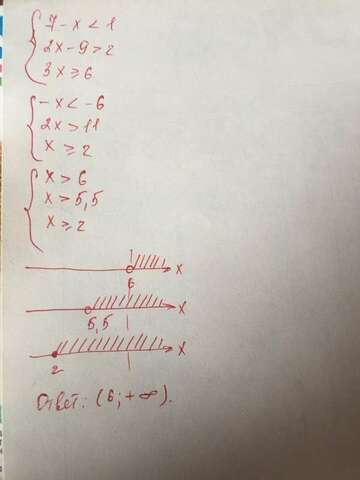 7-x<1
2x-9>2
3x≥6
-x<-6
2x>11
x≥2
x>6
x>5,5
x≥2
x
6
x
5,5
x
2
Ответ: (6;+∞).